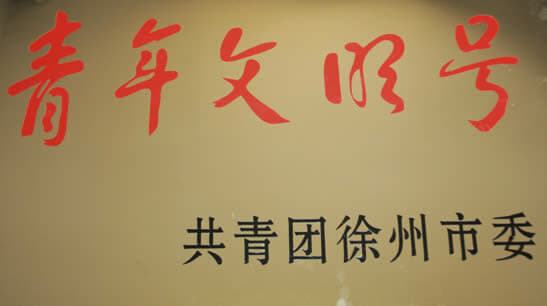 青年文明号
共青团徐州市委